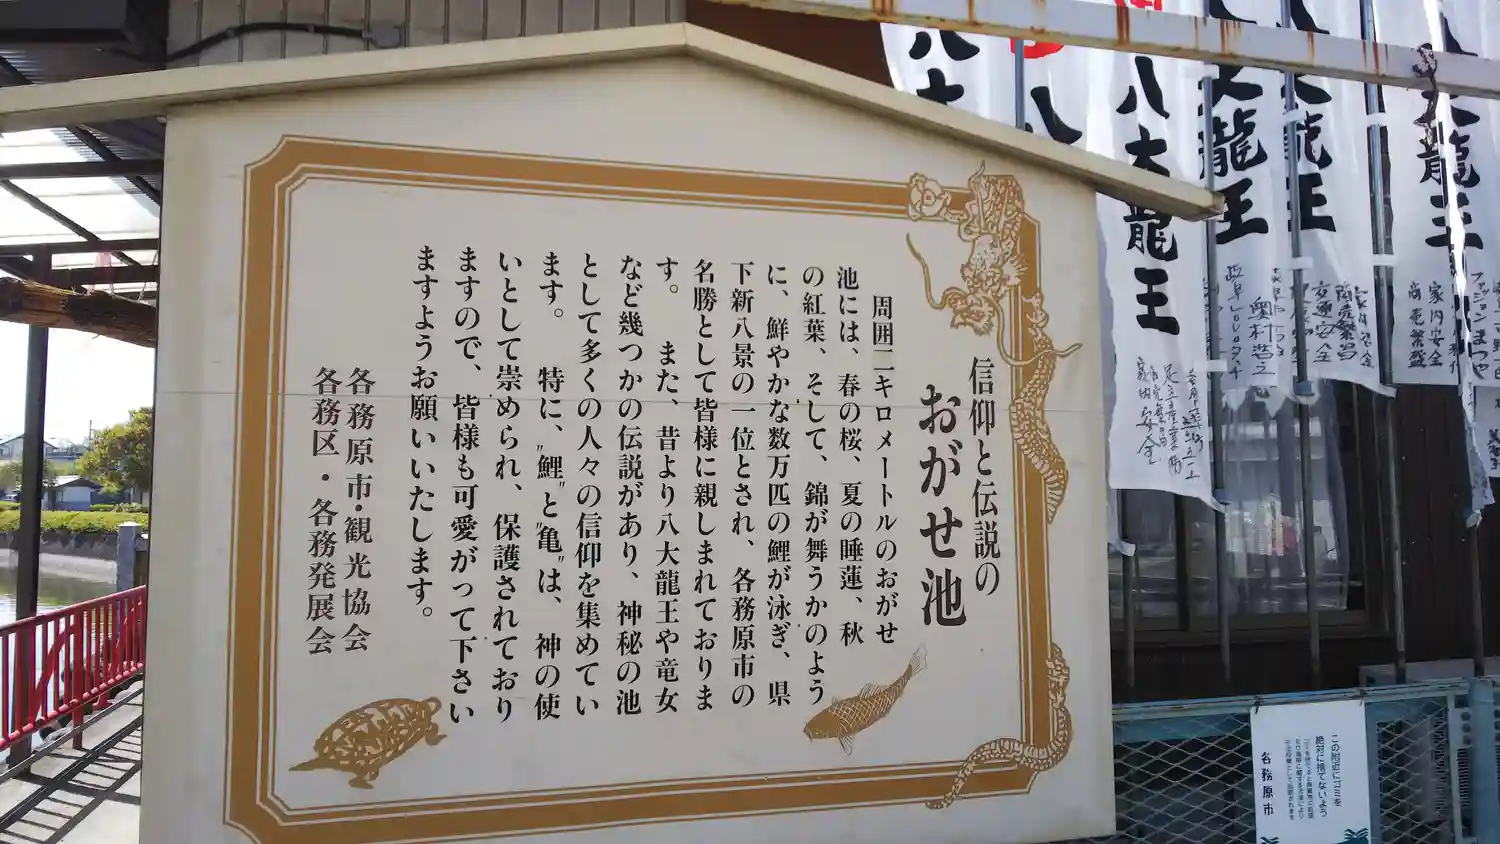 信仰と伝説の
おがせ池
周囲二キロメートルのおがせ
池には、春の桜、夏の睡蓮、秋
の紅葉、そして、錦が舞うかのよう
に、鮮やかな数万匹の鯉が泳ぎ、県
下新八景の一位とされ、各務原市の
名勝として皆様に親しまれておりま
す。 また、昔より八大龍王や竜女
など幾つかの伝説があり、神秘の池
として多くの人々の信仰を集めてい
ます。 特に、〝鯉〟と〝亀〟は、神の使
いとして崇められ、保護されており
ますので、皆様も可愛がって下さい
ますようお願いいたします。
各務原市・観光協会
各務区・各務発展会
八大
八
八大龍王
大龍王
大龍王
大龍王
岐阜
奥村
交通安全
商売繁昌
家内安全
商売繁盛
ファッションまつや
この附近にゴミを
絶対に捨てないよう
各務原市